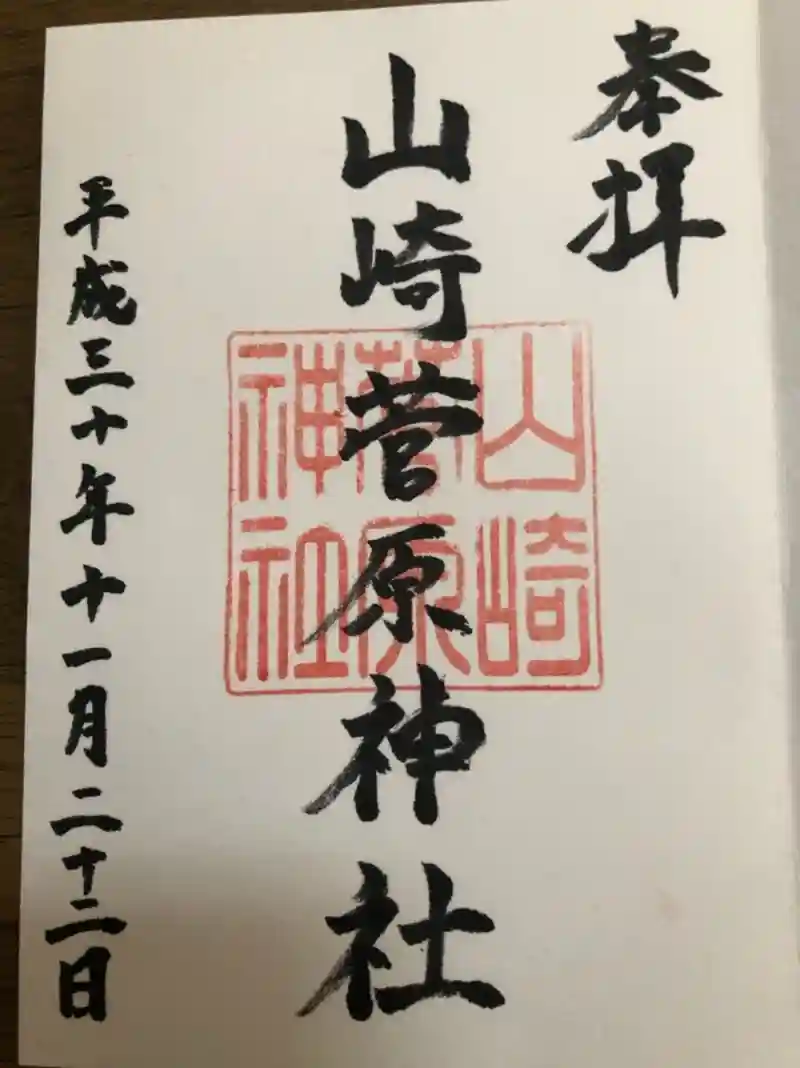 奉拝
山崎菅原神社
山崎
菅原
神社
平成三十年十一月二十二日